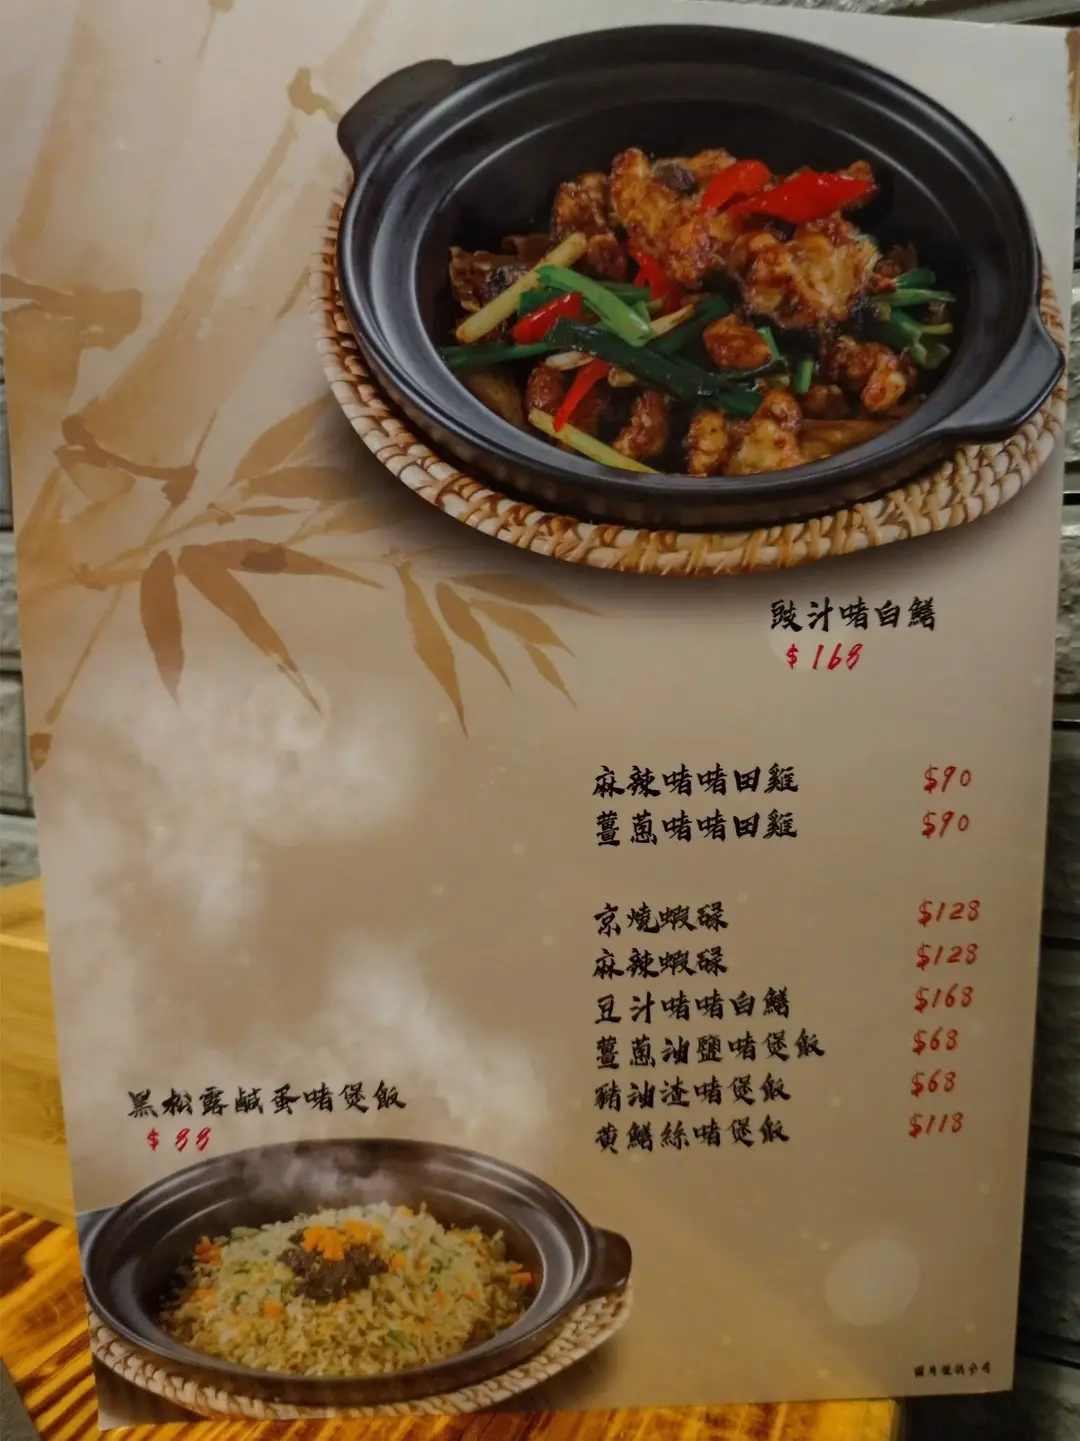 豉汁啫白鱔
$168
麻辣啫啫田雞 $90
薑蔥啫啫田雞 $90
京燒蝦碌 $128
麻辣蝦碌 $128
豆汁啫啫白鱔 $168
薑蔥油鹽啫煲飯 $68
豬油渣啫煲飯 $68
黄鱔絲啫煲飯 $118
黑松露鹹蛋啫煲飯
$88
圖片僅供參考